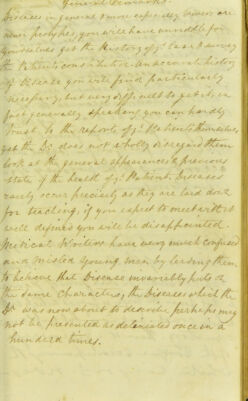 General Remarks.
Diseases in general & more especially fevers are
never protypes, you will have unriddle for
yourselves get the History of ye Case & having
the Patients constitution. An accurate history
of Disease you will find particularly
necessary, but very difficult to get it in
fact generally speaking you can hardly
trust to the reports of ye Patients themselves,
yet the Dr. does not wholly disregard them
look at the general appearances & previous
state of the health of ye Patient. Diseases
rarely occur precisely as they are laid down
for teaching, if you expect to meet with it
well defined you will be disappointed.
Medical Writers have very much confused
and misled young men by leading them
to believe that Disease invariably puts on
the same Characters, the Diseases which the
Dr was now about to describe perhaps may
not be presented as delineated once in a
hundred times.